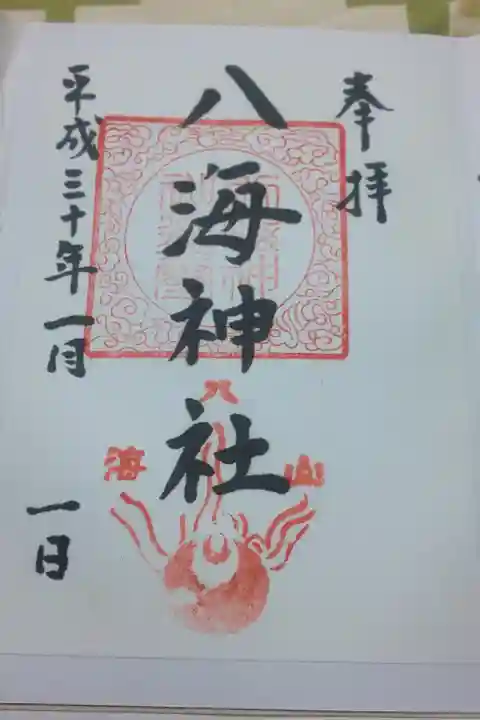 奉拝
八海神社
平成三十年一月一日
八
海
山